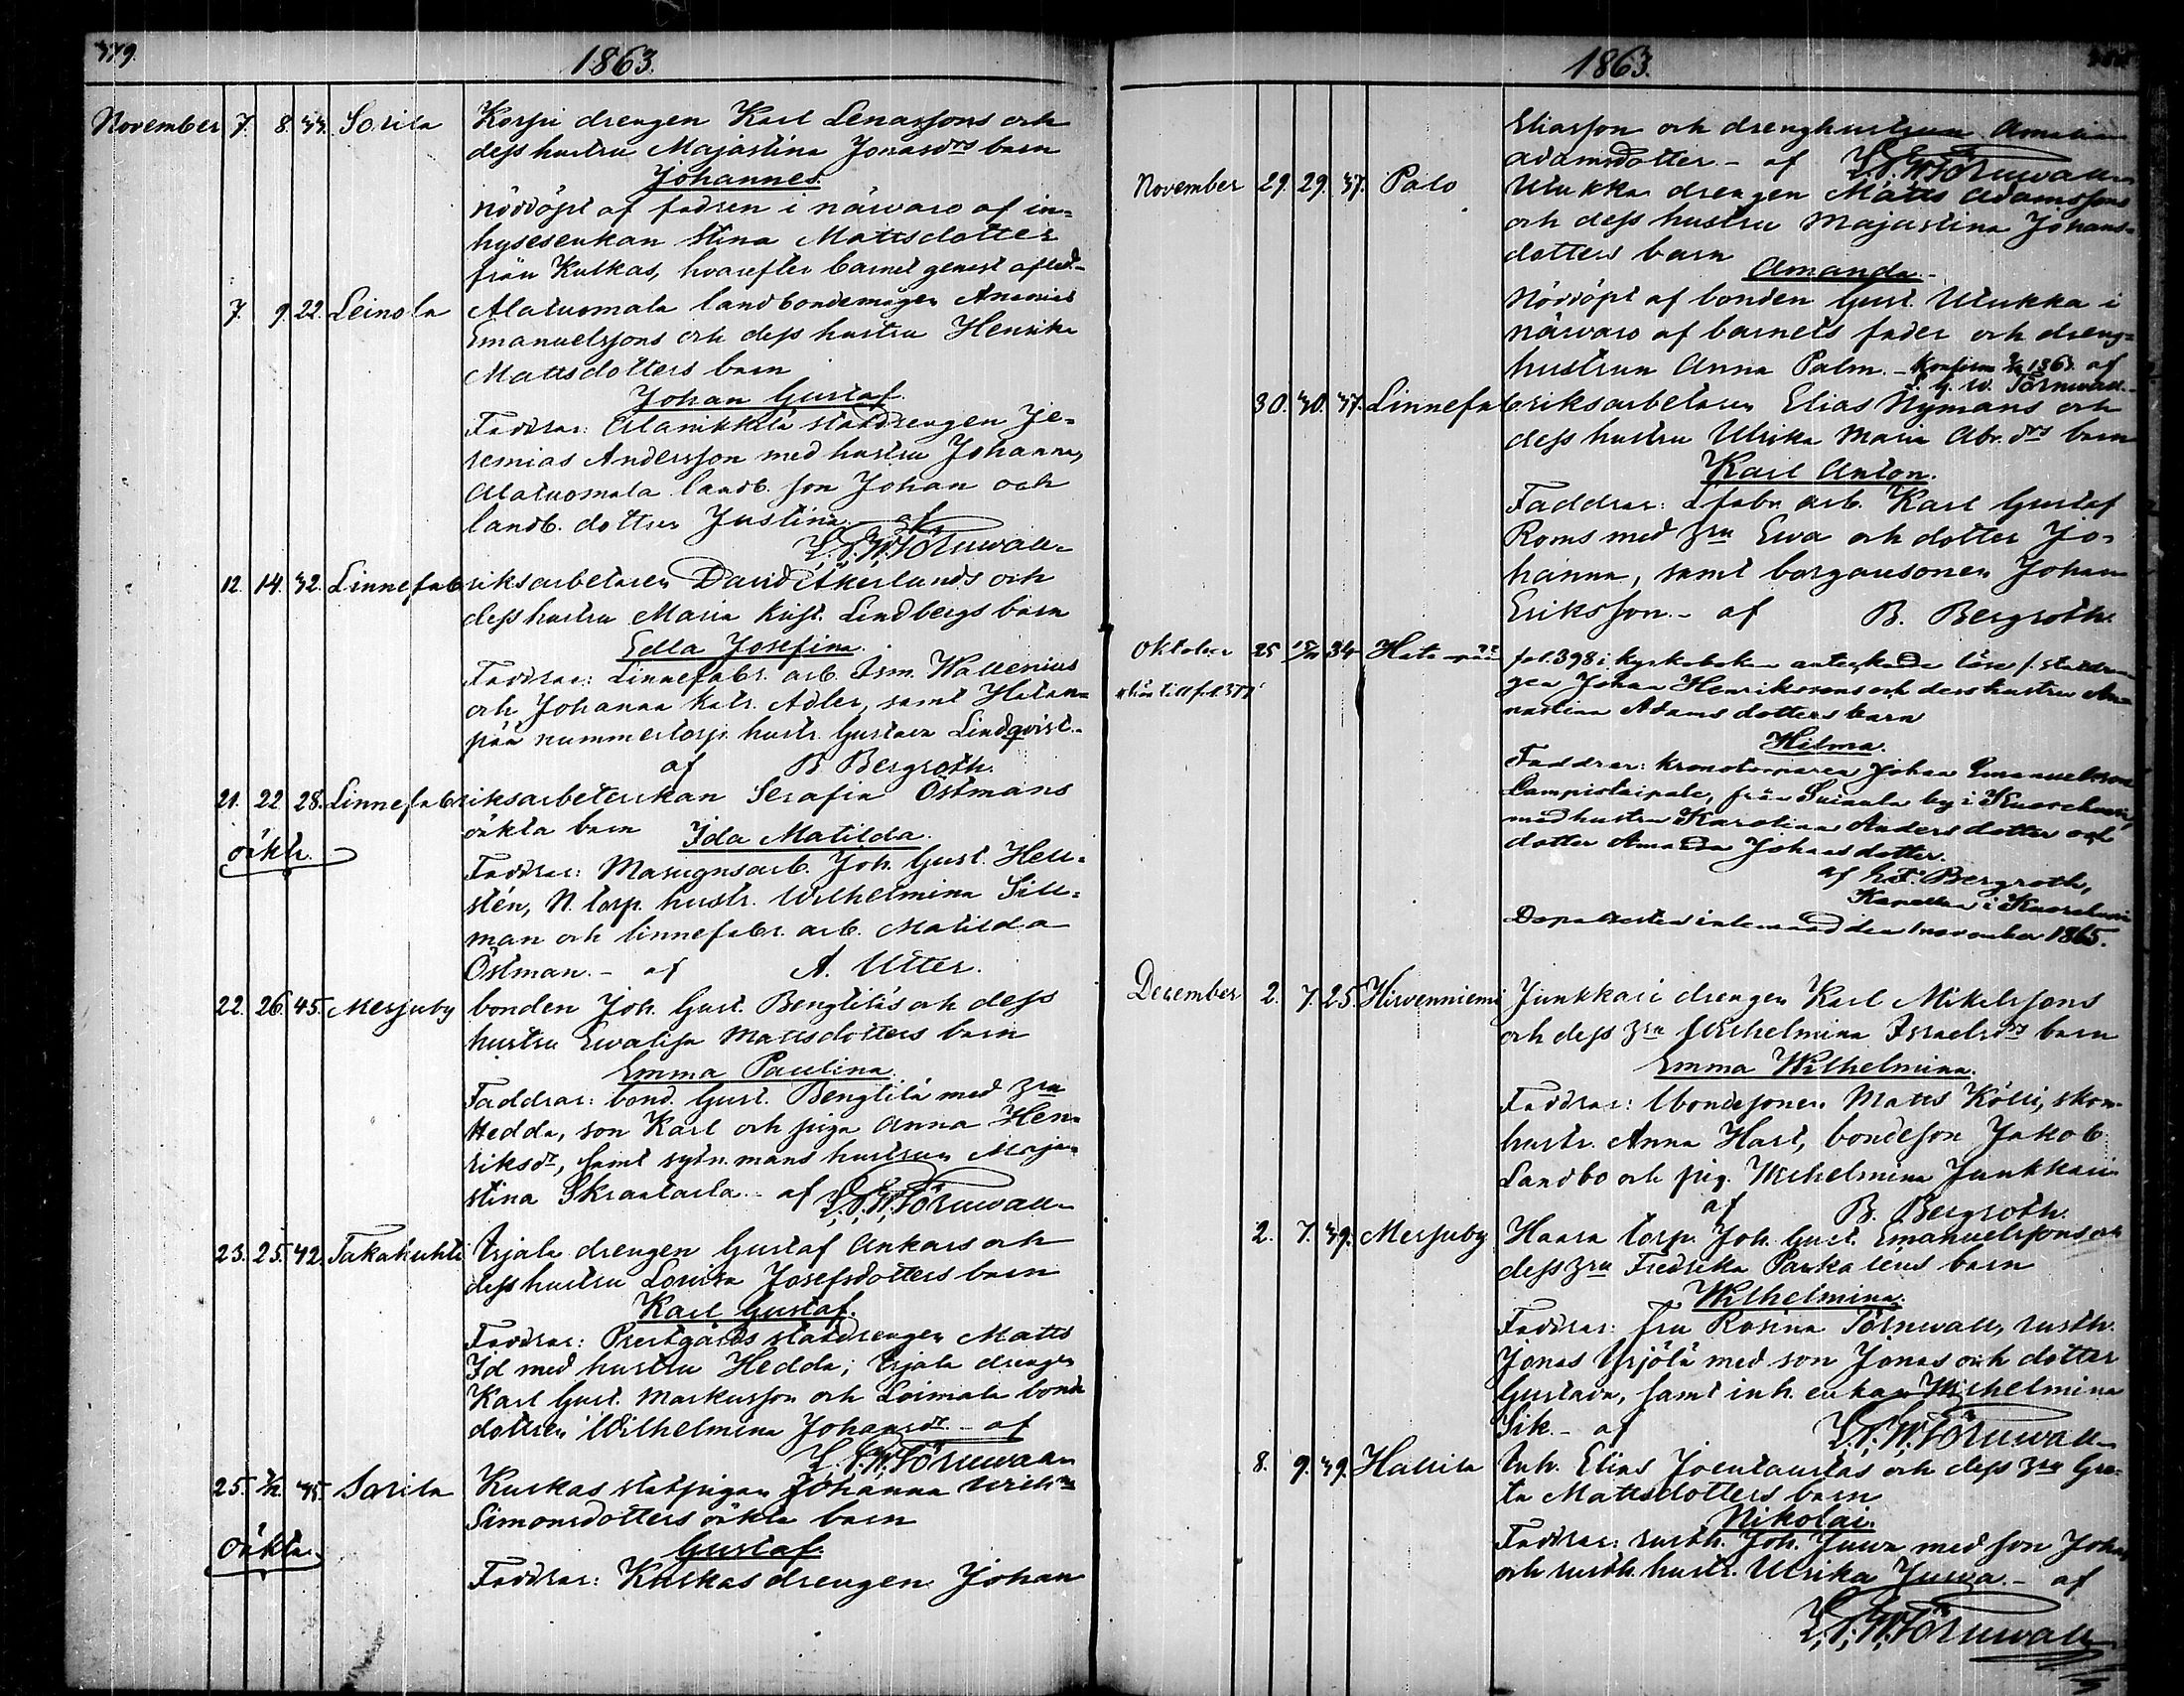 1863.
November 7. 8. 33. Sorila Korpi drengen Karl Lenassons och
dess hustru Majastina Jonasdrs barn
Johannes.
Nöddöpt af fadren i närvaro af in=
hysesenkan Stina Mattsdotter
från Kulkas, hvarefter barnet genast afled.
7. 9. 22. Leinola Alatuomala landbondemågen Ananias
Emanuelssons och dess hustru Henrika
Mattsdotters barn
Johan Gustaf.
Faddrar: Alanikkilä statdrengen Je=
remias Andersson med hustru Johanna,
Alatuomala landb. son Johan och
landb. dottren Justina. af
L. G. W. Törnwall
12. 14. 32. Linnefabriksarbetaren David Åkerlunds och
dess hustru Maria Krist. Lindbergs barn
Edla Josefina.
Faddrar: Linnefabr. arb. Ism. Wallenius
och Johanna Katr. Adler, samt Hatan=
pää nummertorp. hustr. Gustava Lindqvist.
af B Bergroth.
21. 22 28. Linnefabriksarbeterskan Serafia Östmans
oäkta barn
oäkta.
Ida Matilda.
Faddrar: Masugnsarb. Joh. Gust. Hell=
stén, N. torp. hustr. Wilhelmina Sill=
man och linnefabr. arb. Matilda
Östman. - af A. Utter.
22. 26. 45. Messuby bonden Joh. Gust. Bengtilä's och dess
hustru Evalisa Mattsdotters barn
Emma Paulina.
Faddrar: bond. Gust. Bengtilä med hru
Hedda, son Karl och piga Anna Hen=
riksdr, samt sytn. mans hustrun Maja
stina Skraatarla. - af L. G. W. Törnwall
23. 25. 42. Takahuhti Erjala drengen Gustaf Ankars och
dess hustru Lovisa Josefsdotters barn
Karl Gustaf.
Faddrar: Prestgårds statdrengen Matts
Id med hustru Hedda; Erjala drengen
Karl Gust. Markusson och Loimala bond
dottren Wilhelmina Johansdr. - af
L. G. W. Törnwall
25. 35. Sorila Kurkas statpigan Johanna Wilhna
Simonsdotters oäkta barn
oäkta.
Gustaf.
Faddrar: Kurkas drengen Johan
1863.
Eliasson och drenghustrun Amalia
Adamsdotter. - af L. G. W. Törnwall
November 29. 29. 37. Palo Ulukka drengen Matts Adamssons
och dess hustru Majastina Johans=
dotters barn
Amanda. -
Nöddöpt af bonden Gust. Ulukka i
närvaro af barnets fader och dreng=
hustrun Anna Palm. - Konfirm. 1863. af
L. G. W. Törnwall.
30. 30. 37. Linnefabriksarbetaren Elias Nymans och
dess hustru Ulrika Maria Abr. drs barn
Karl Anton.
Faddrar: Lfabr. arb. Karl Gustaf
Roms med hru Ewa och dotter Jo=
hanna, samt borgaresonen Johan
Eriksson. - af B. Bergroth.
Oktober 25 34 Hatanpää fol. 398 i kyrkoboken antecknade löse f. statdren
gen Johan Henrikssons och dess hustru An=
nastina Adamsdotters barn
Hilma.
Faddrar: kronotorparen Johan Emanuelsson
Lampistaipale, från Suinula by i Kuorehwesi,
med hustru Karolina Andersdotter och
dotter Amanda Johansdotter.
af G. F. Bergroth,
Kapellan i Kuorehwesi
den 1 november 1865.
December 2. 7. 25. Hirvenniemi Junkkari drengen Karl Mikelssons
och dess hru Wilhelmina Israelsdrs barn
Emma Wilhelmina.
Faddrar: bondesonen Matts Kölli, skom.
hustr. Anna Harl, bondeson Jakob
Landbo och pig. Wilhelmina Junkkari
af B. Bergroth.
2. 7. 39. Messuby Haara torp. Joh. Gust. Emanuelssons och
dess hru Fredrika Parkaléns barn
Wilhelmina.
Faddrar: fru Rosina Törnwall, rusth.
Jonas Yrjölä med son Jonas och dotter
Gustava, samt inh. enkan Wilhelmina
Sik. - af L. G. W. Törnwall
8. 9. 39. Hallila Inh. Elias Joentaustas och dess hru Gre=
ta Mattsdotters barn
Nikolai.
Faddrar: rusth. Joh. Juwa med son Johan
och rusth. hustr. Ulrika Juwa. - af
L. G. W. Törnwall